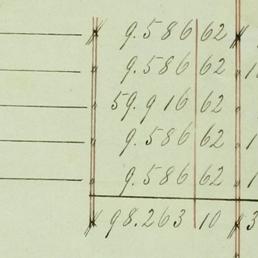 9.586 62
9.586 62
59.916 62
9.586 62
9.586 62
98.263 10